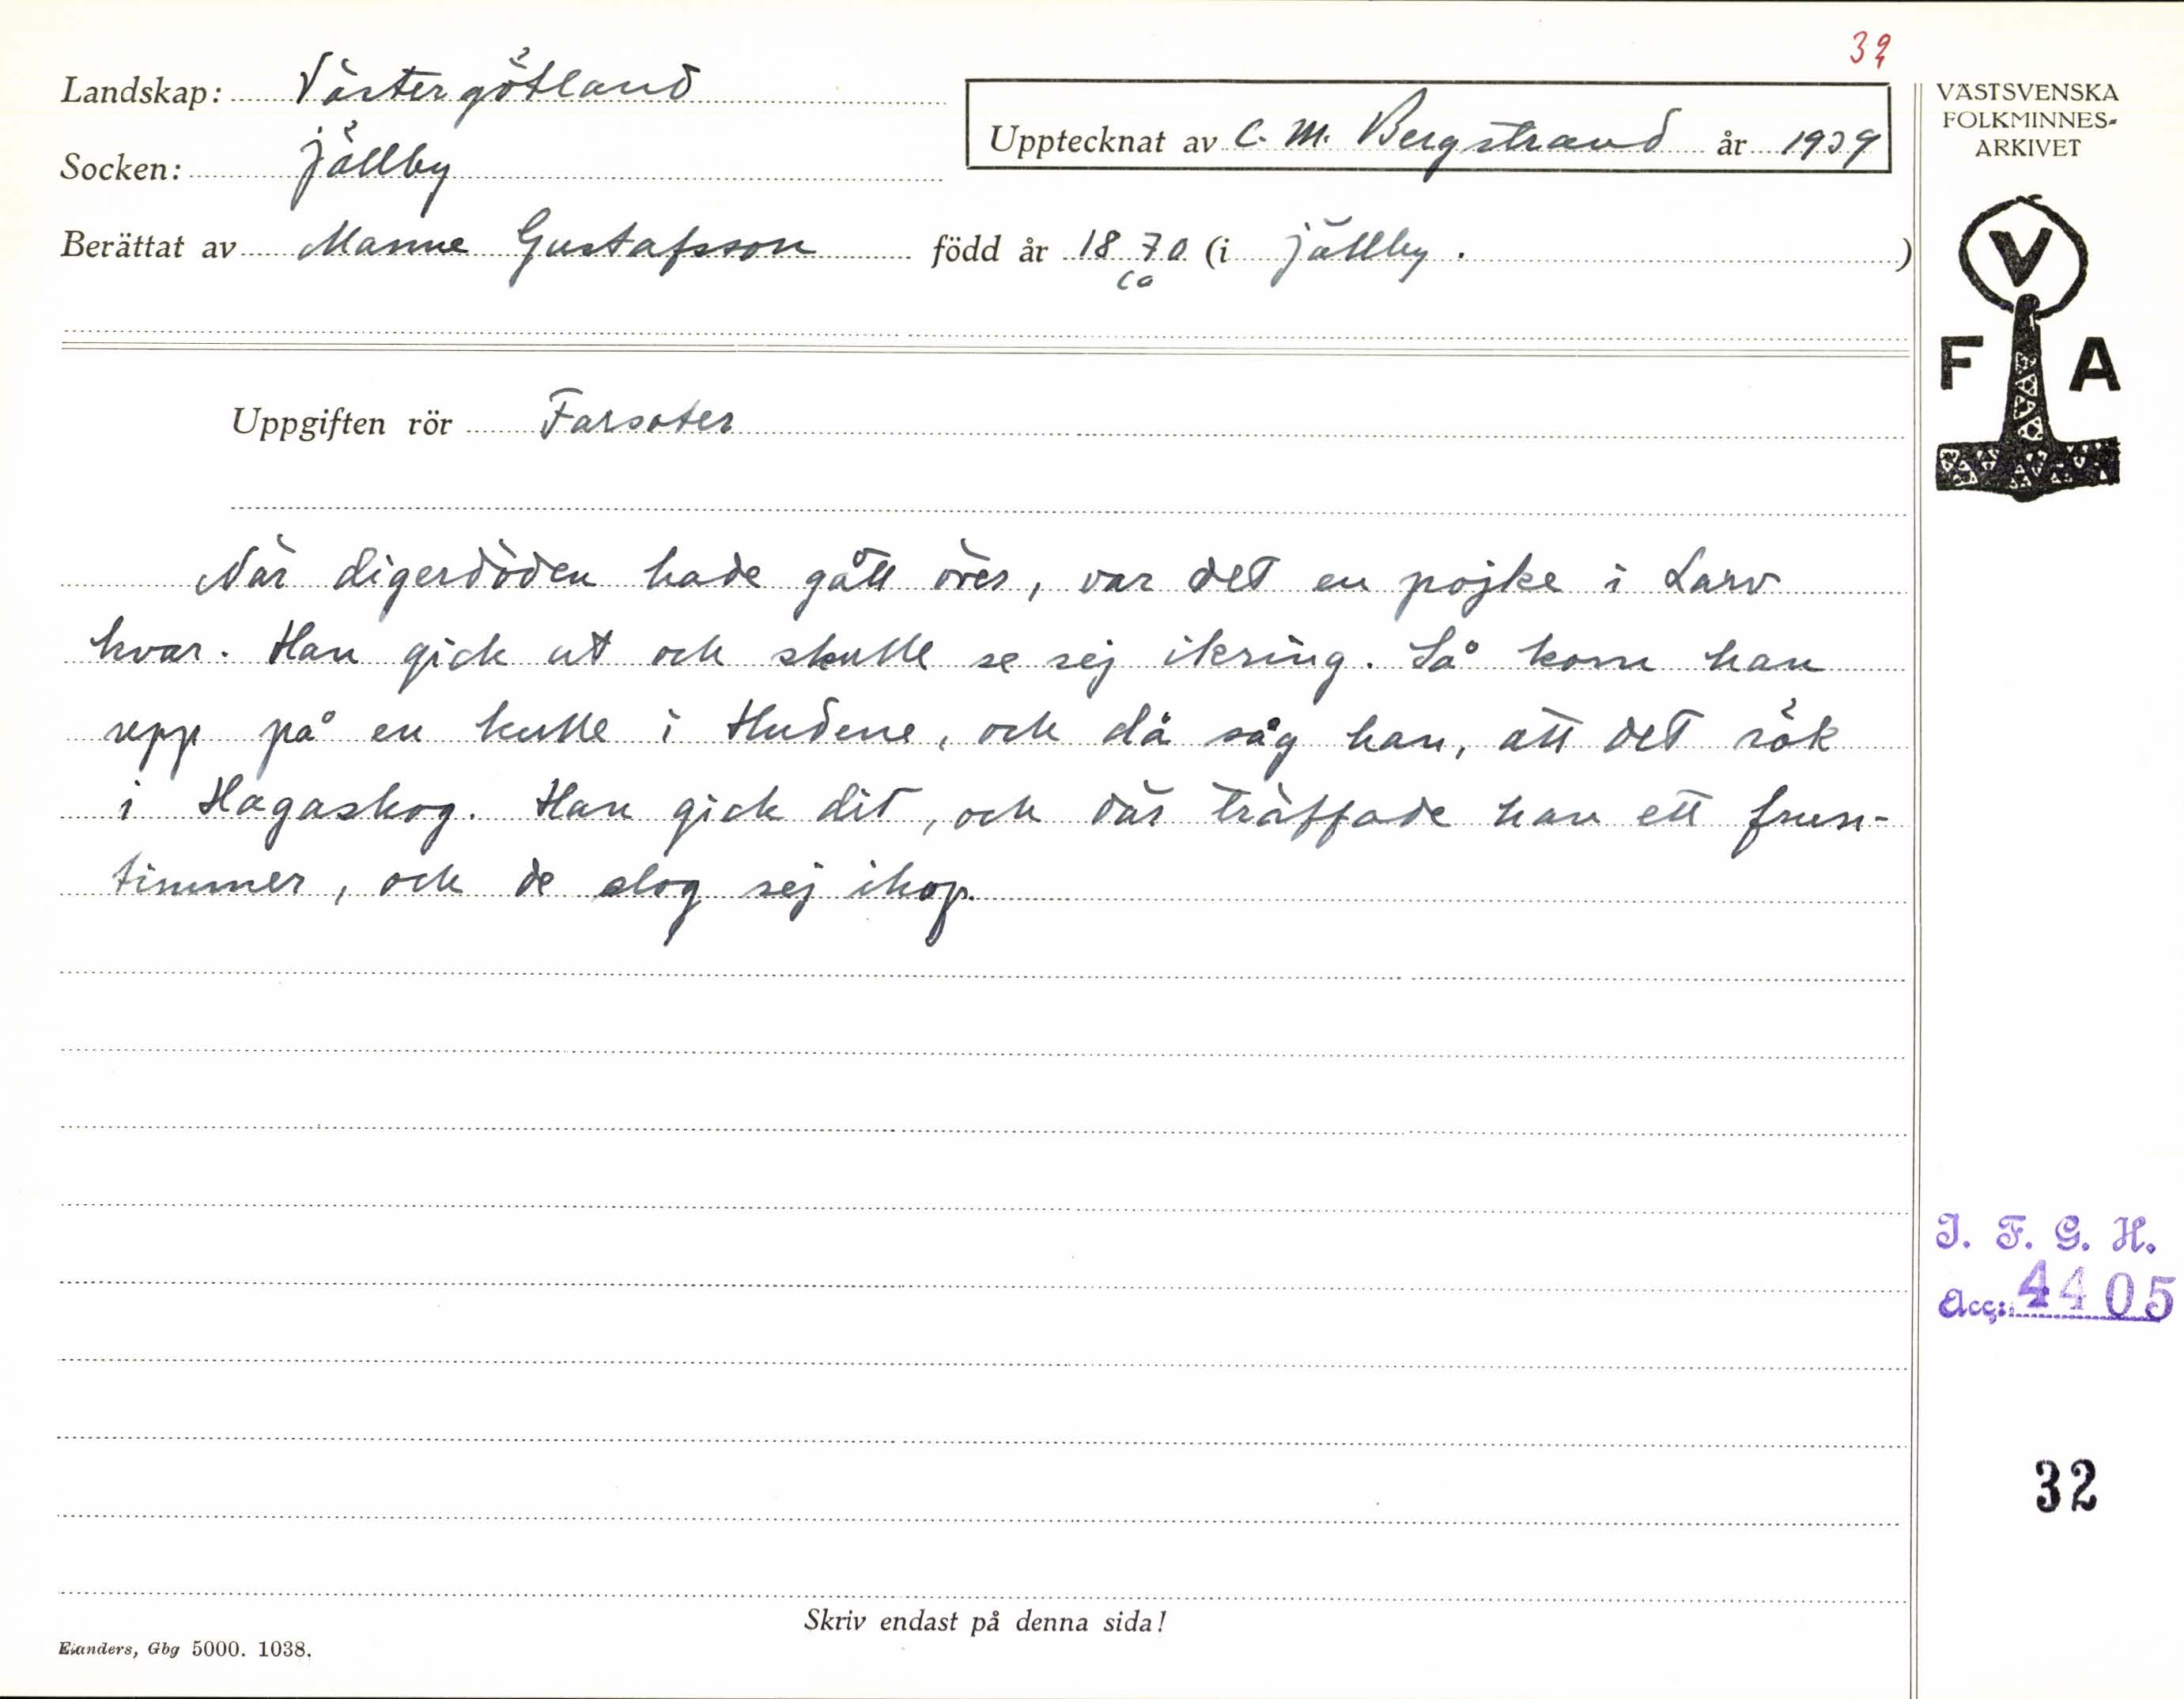 32
Landskap: Västergötland
Upptecknat av C. M. Bergstrand år 1939
Socken: Jällby
Berättat av Manne Gustafsson född år 1870 (i Jällby.)
ca
Uppgiften rör Farsoter
När digerdöden hade gått över, var det en pojke i Larv
kvar. Han gick ut och skulle se sej ikring. Så kom han
upp på en kulle i Hudene, och då såg han, att det rök
i Hagaskog. Han gick dit, och där träffade han ett frun-
timmer, och de slog sej ihop.
Skriv endast på denna sida!
Elanders, Gbg 5000. 1038.
VÄSTSVENSKA
FOLKMINNES-
ARKIVET
V
F A
I. F. G. H.
Acc: 4405
32